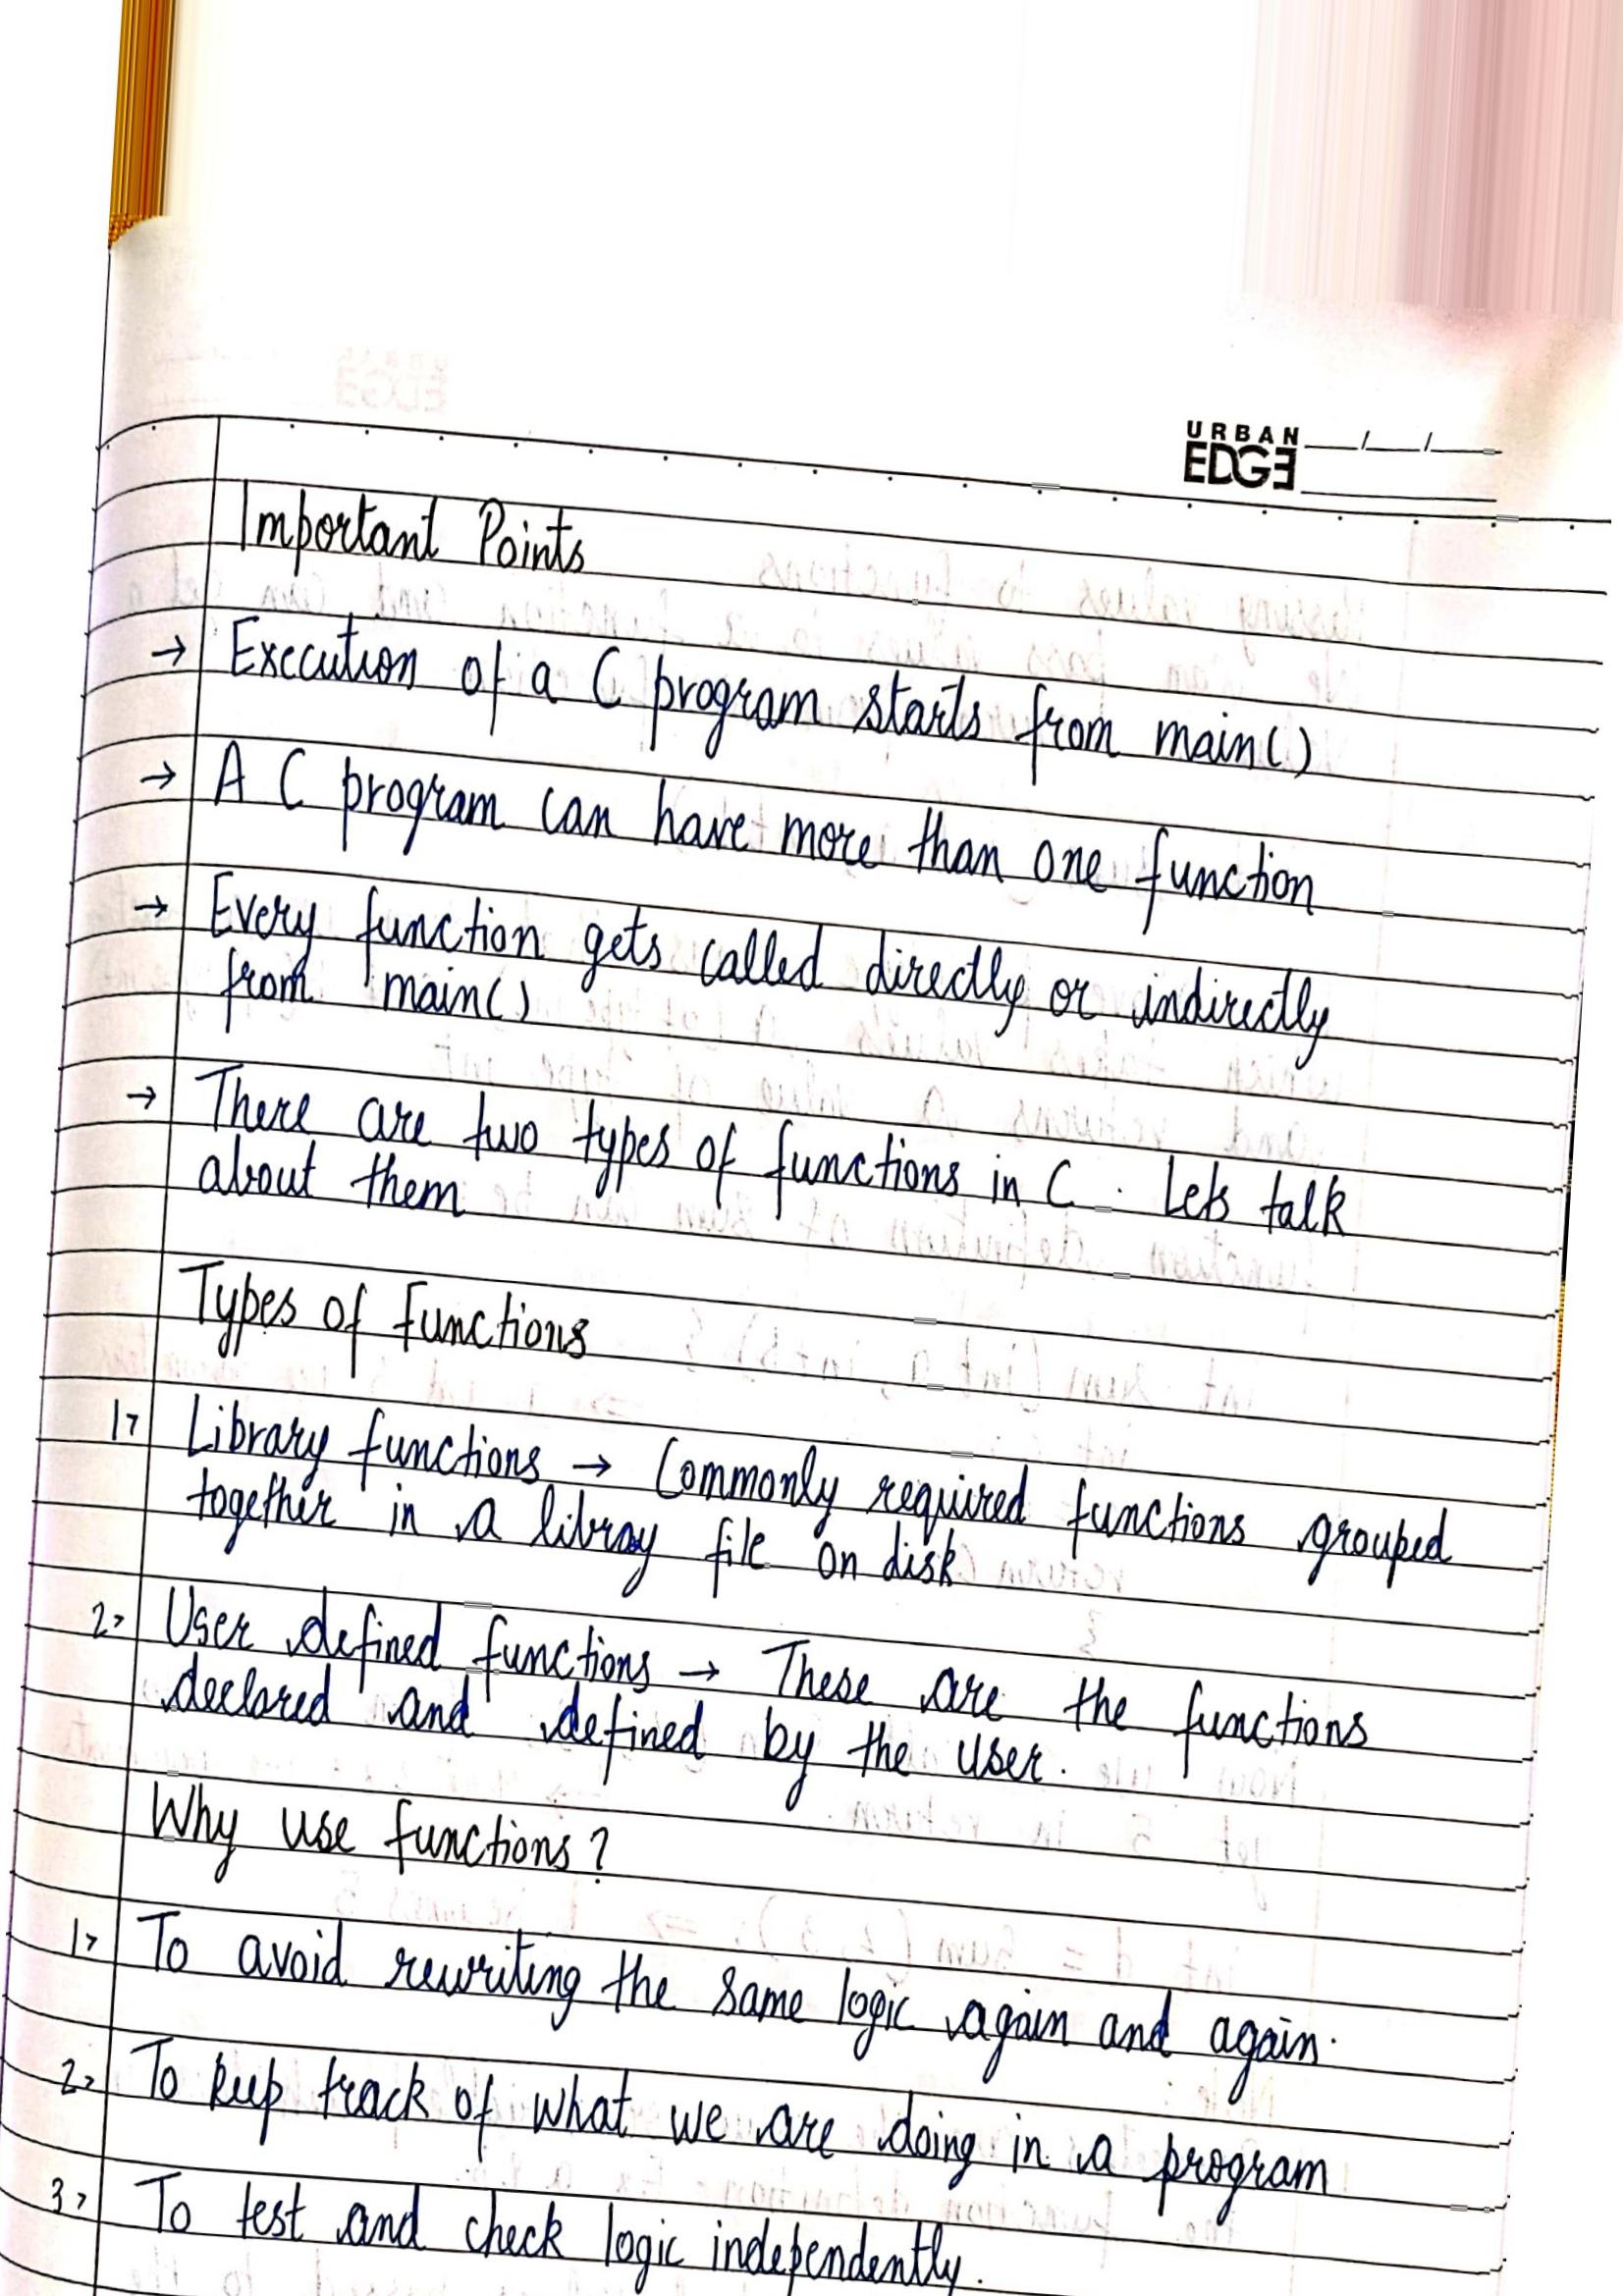 URBAN
EDGE
Important Points
→ Execution of a C program starts from main()
→ A C program can have more than one function
→ Every function gets called directly or indirectly
from main()
→ There are two types of functions in C. Lets talk
about them
Types of functions
1> Library functions → Commonly required functions grouped
together in a libray file on disk
2> User defined functions → These are the functions
declared and defined by the user.
Why use functions?
1> To avoid rewriting the same logic again and again.
2> To keep track of what we are doing in a program
3> To test and check logic independently.